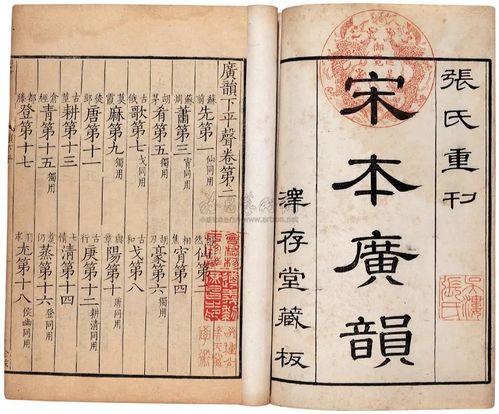 張氏重刊
宋本廣韻
澤存堂藏板
御覽
廣韻下平聲卷第二
蘇前先第一仙同用 仙第二
蕭第三宵同用 相焦宵第四
胡肴第五獨用 胡豪第六獨用
古俄歌第七戈同用 古戈第八
莫霞麻第九獨用 與章陽第十唐同用
郎唐第十一 行庚第十二耕清同用
古莖耕第十三 七情清第十四
倉經青第十五獨用 仍蒸第十六登同用
都滕登第十七 羽求尤第十八侯幽同用